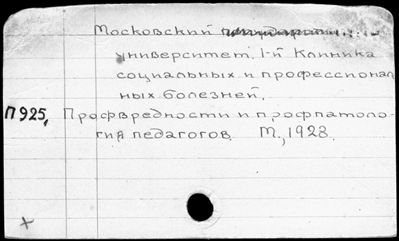 Московский
университет. 1-й Клиника
социальных и профессионал
ных болезней.
П925, Профвредности и профпатоло-
гия педагогов. М., 1928.